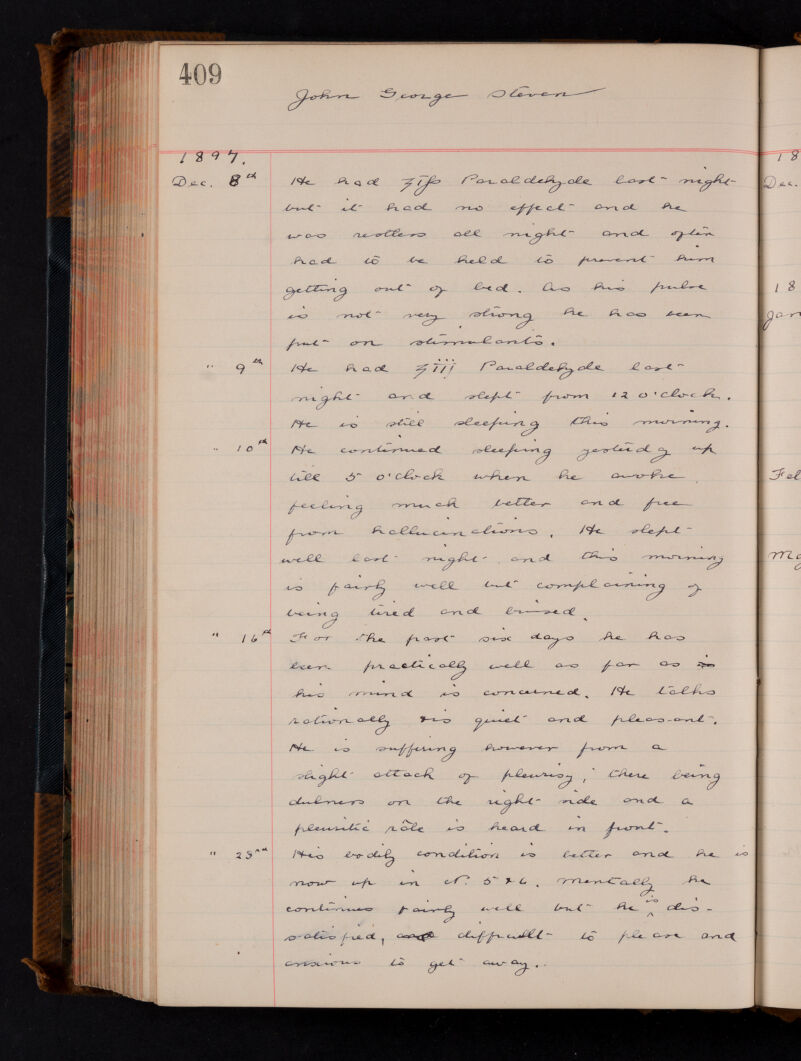 409
John George Steven
1897.
Dec. 8th He had ʒiſs Paraldehyde last night
but it had no effect and he
was restless all night and often
had to be held to prevent him
getting out of bed. As his pulse
is not very strong he has been
put on stimulants.
" 9th He had ʒiii Paraldehyde last
night and slept from 12 o'clock.
He is still sleeping this morning.
" 10th He continued sleeping yesterday up
till 5 o'clock when he awoke
feeling much better and free
from hallucinations. He slept
well last night and this morning
is fairly well but complaining of
being tired and bruised.
" 16th For the past six days he has
been practically well as far as
his mind is concerned. He talks
rationally & is quiet and pleasant.
He is suffering however from a
slight attack of pleurisy; there being
dulness on the right side and a
pleuritic râle is heard in front.
" 23rd His bodily condition is better and he is
now up in N. 5 & 6. Mentally he
continues fairly well but he is dis-
satisfied, difficult to please and
anxious to get away.
18
Dec.
18
Jan
Fe